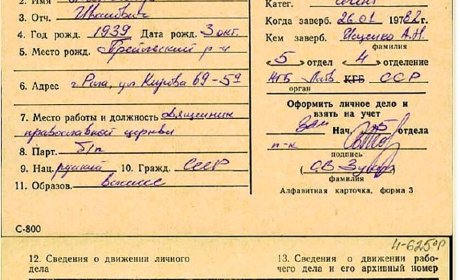 2. Имя
3. Отч. Иванович
4. Год рожд. 1939 Дата рожд. 3 окт.
5. Место рожд. Прейльский р-н
6. Адрес г. Рига, ул Кирова 69-59
7. Место работы и должность Священник
православной церкви
8. Парт. Б/п
9. Нац. русский 10. Гражд. СССР
11. Образов. высшее
С-800
Катег.
Когда заверб. 26.01 1982
Кем заверб.
фамилия
5 отдел 4 отделение
КГБ Лат КГБ ССР
орган
Оформить личное дело и
взять на учет
Зам Нач. 5 отдела
п-к
подпись
фамилия
Алфавитная карточка, форма 3
12. Сведения о движении личного
дела
13. Сведения о движении рабо-
чего дела и его архивный номер